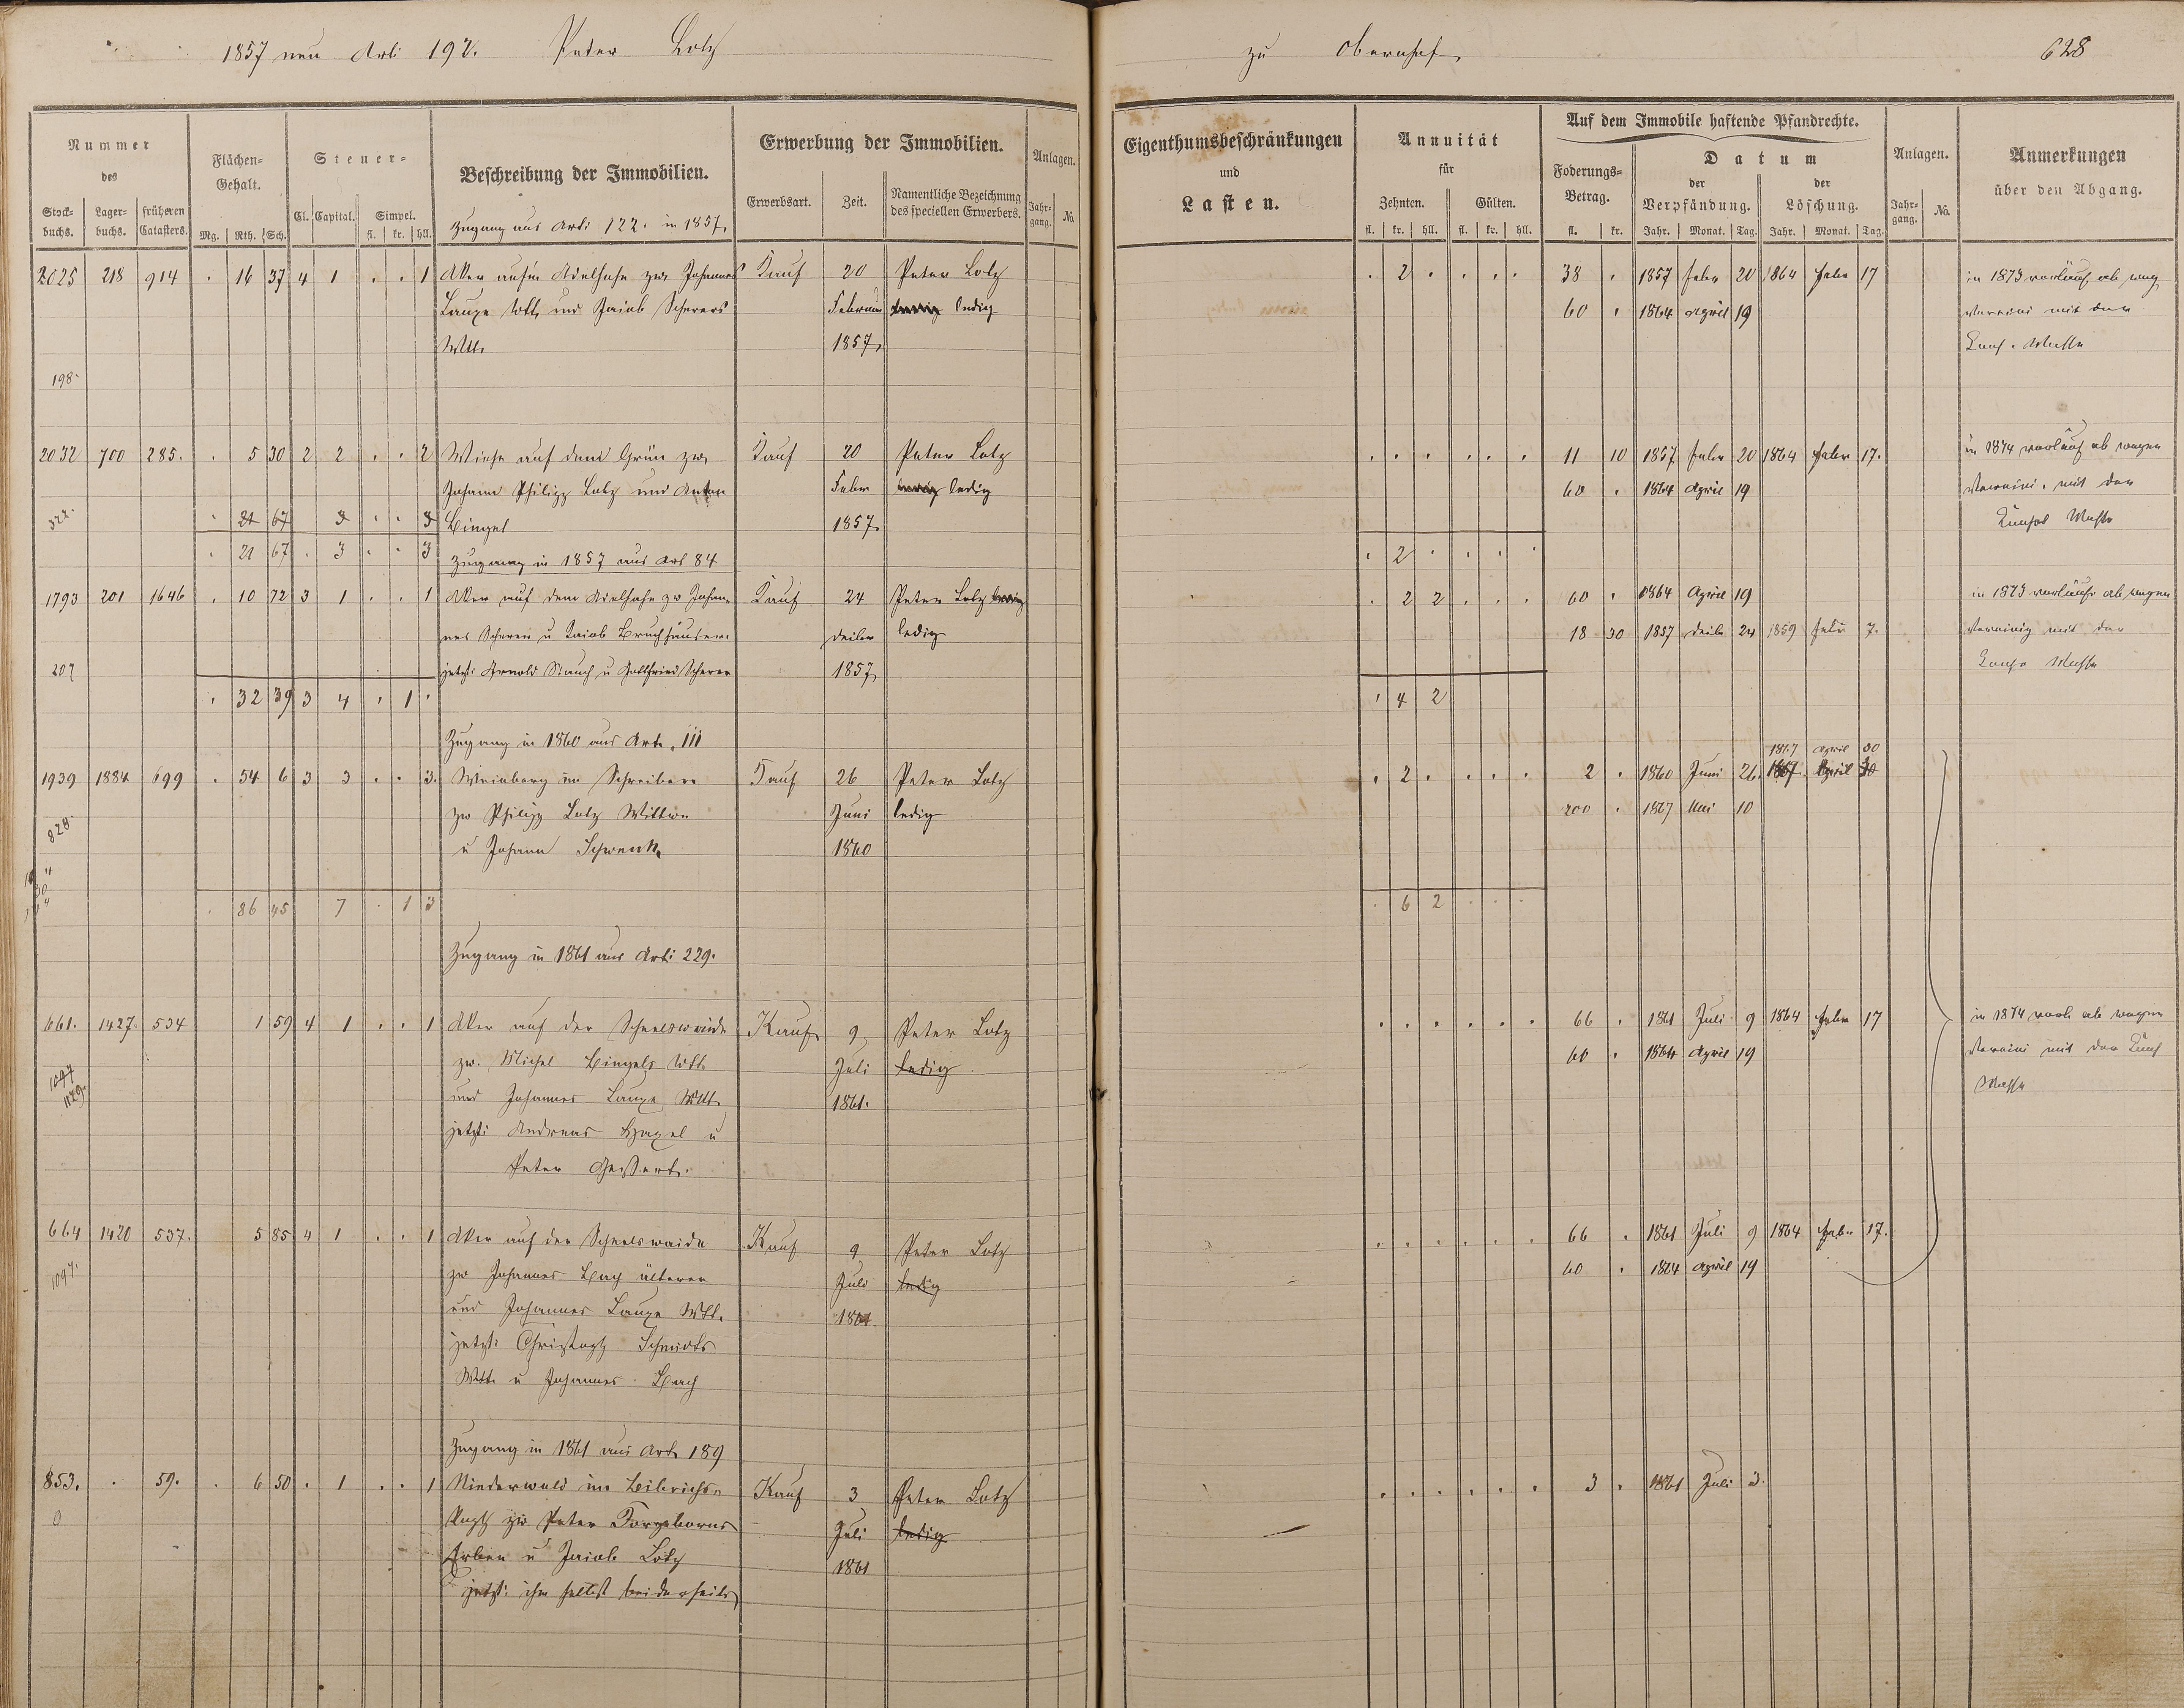 1857 neu Art: 192. Peter Lotz
zu Obernhof
628
Nummer des
Stock- buchs.
Lager- buchs.
früheren Catasters.
Flächen- Gehalt.
Mg. Rth. Sch.
Steuer-
Cl. Capital. Simpel.
fl. kr. hll.
Beschreibung der Immobilien.
Zugang aus Art: 122. in 1857.
Erwerbung der Immobilien.
Erwerbsart. Zeit. Namentliche Bezeichnung des speciellen Erwerbers.
Anlagen.
Jahr- gang. No.
Eigenthumsbeschränkungen
und
Lasten.
Annuität
für
Zehnten. Gülten.
fl. kr. hll. fl. kr. hll.
Auf dem Immobile haftende Pfandrechte.
Foderungs- Betrag.
fl. kr.
Datum
der Verpfändung. der Löschung.
Jahr. Monat. Tag. Jahr. Monat. Tag.
Anlagen.
Jahr- gang. No.
Anmerkungen
über den Abgang.
2025 218 914 . 16 37 4 1 . . 1 Aker aufm Adelhahn zw. Johannes Kauf 20 Peter Lotz . 2 . . . . 38 . 1857 Febr 20 1864 Febr 17 in 1873 vorläuf ab weg
Laupe Wtt. und Jacob Scherers Februar ledig 60 . 1864 April 19 Vereini mit der
Wtt. 1857. Konf. Masse
198.
2032 700 285. . 5 30 2 2 . . 2 Wiese auf dem Grün zw. Kauf 20 Peter Lotz . . . . . . 11 10 1857 Febr 20 1864 Febr 17. in 1874 vorläuf ab wegen
Johann Philipp Lotz und Anton Febr ledig 60 . 1864 April 19 Vereini. mit der
322. . 21 67 3 . . 3 Bingel 1857. Masse
. 21 67 . 3 . . 3 Zugang in 1857 aus Art 84 . 2 . . . .
1793 201 1646 . 10 72 3 1 . . 1 Aker auf dem Adelhahn zw Johan- Kauf 24 Peter Lotz . 2 2 . . . 60 . 1864 April 19 in 1873 vorläuf ab wegen
nes Scherer u Jacob Bruchhäuser ledig 18 30 1857 24 1859 Febr 7. Vereinig mit der
207 jetzt: Arnold Stauch u Gottfried Scherer 1857. Masse
. 32 39 3 4 . 1 . . 4 2
Zugang in 1860 aus Art. 111
1867 April 30
1939 1884 699 . 54 6 3 3 . . 3. Weinberg im Schreiber Kauf 26 Peter Lotz . 2 . . . . 2 . 1860 Juni 26. 1867 April 30
828. zw Philipp Lotz Wittwe Juni ledig 200 . 1867 Mai 10
u Johann Schwenk. 1860
. 86 45 7 . 1 3 . 6 2 . . .
Zugang in 1861 aus Art: 229.
661. 1427. 534 1 59 4 1 . . 1 Aker auf der Scheelswaide Kauf 9 Peter Lotz . . . . . . 66 . 1861 Juli 9 1864 Febr 17 in 1874 vorl ab wegen
zw. Michel Bingels Wtt. Juli ledig 60 . 1864 April 19 Vereini mit der
1097 1129. und Johannes Laupe Wtt. 1861. Masse
jetzt: Andreas u
Peter Geißert.
664 1420 537. 5 85 4 1 . . 1 Aker auf der Scheelswaide Kauf 9 Peter Lotz . . . . . . 66 . 1861 Juli 9 1864 Febr 17.
1097. zw Johannes Bach älteren Juli ledig 60 . 1864 April 19
und Johannes Laupe Wtt. 1861
jetzt: Christoph Schmidts
Wtt. u Johannes Bach
Zugang in 1861 aus Art. 189
853. . 59. . 6 50 . 1 . . 1 Niederwald im Kauf 3 Peter Lotz . . . . . . 3 . 1861 Juli 3.
0 zw Peter Juli ledig
Erben u Jacob Lotz 1861
jetzt: ihm selbst beiderseits